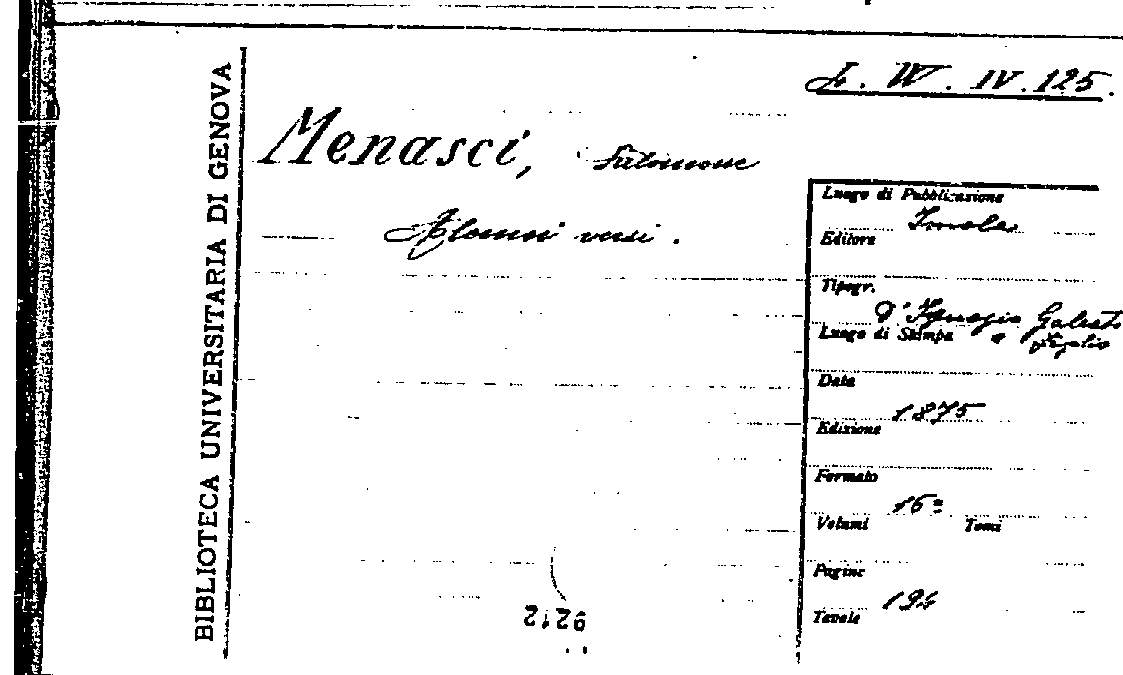 BIBLIOTECA UNIVERSITARIA DI GENOVA
L. W. IV. 125.
Menasci, Salomone
Alcuni versi.
Luogo di Pubblicazione
Imola
Editore
Tipogr.
D'Ignazio Galeati
e Figlio
Luogo di Stampa
Data
1875
Edizione
Formato
16º
Volumi Tomi
Pagine
194
Tavole
9212